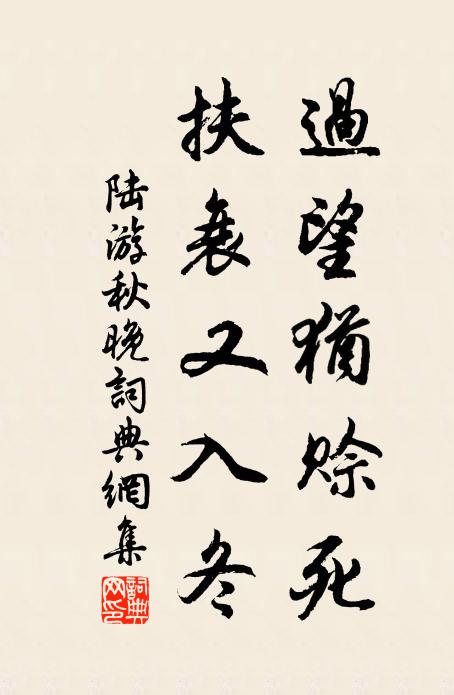 過望猶賒死
扶衰又入冬
陆游秋晚詞典網集
詞典网印